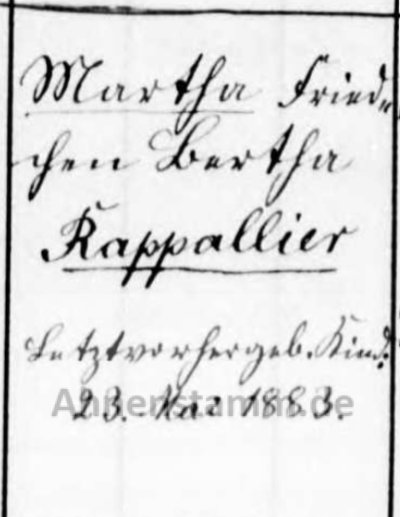 Martha Fried-
chen Bertha
Kappallier
Letztvorhergeb. Kind:
23. Mai 1883.
Ahnenstamm.de